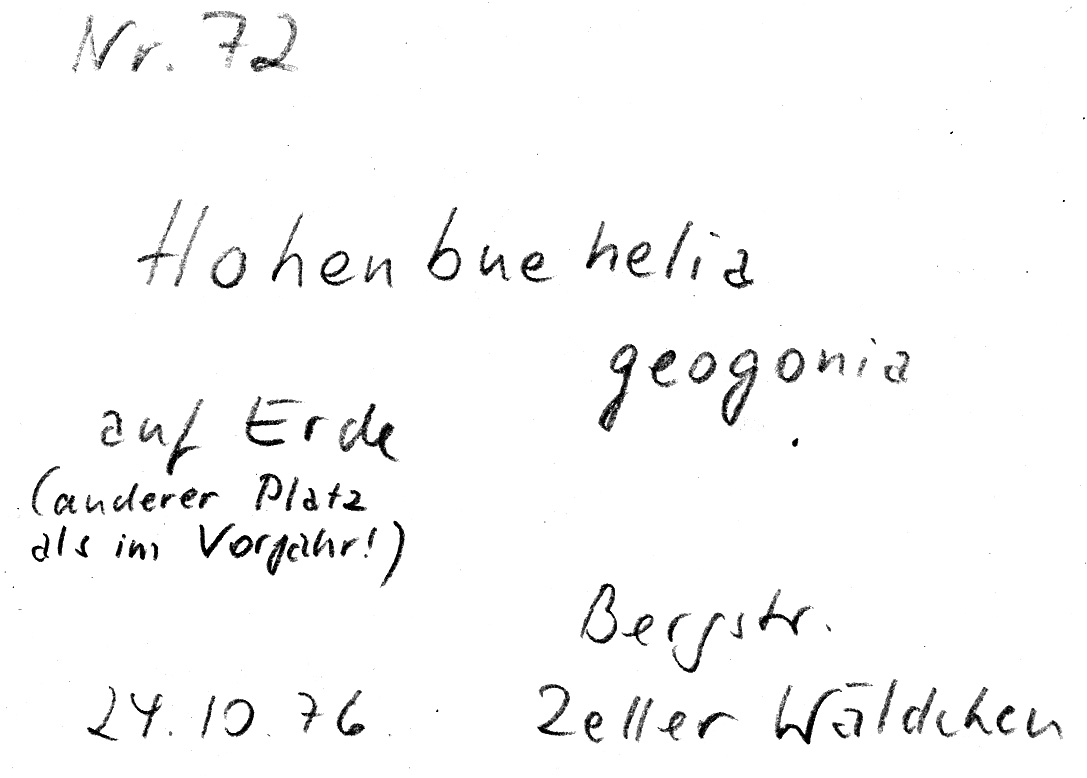 Nr. 72
Hohenbuehelia
geogonia
auf Erde
(anderer Platz
als im Vorjahr!)
Bergstr.
24.10.76
Zeller Wäldchen